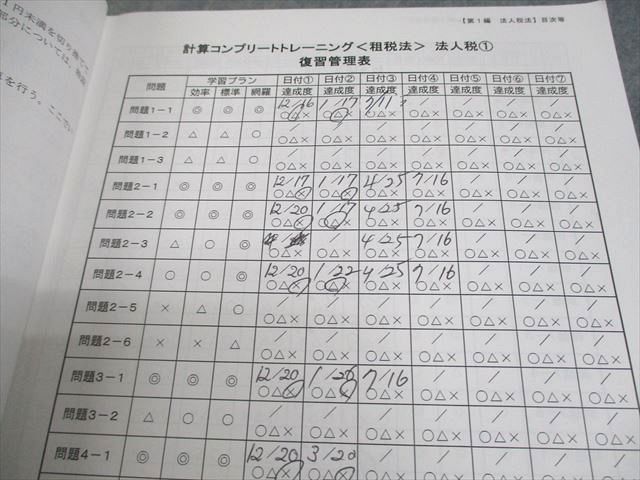 1円未満を切り捨て
部分については、発
を行う。ここでい
【第1編 法人税法】目次等
計算コンプリートトレーニング<租税法> 法人税①
復習管理表
問題 学習プラン 日付① 日付② 日付③ 日付④ 日付⑤ 日付⑥ 日付⑦
効率 標準 網羅 達成度 達成度 達成度 達成度 達成度 達成度 達成度
問題1-1 ◎ ◎ ◎ 12/16 1/17 7/11 / / / /
○△× ○△× ○△× ○△× ○△× ○△× ○△×
問題1-2 △ △ ○ / / / / / / /
○△× ○△× ○△× ○△× ○△× ○△× ○△×
問題1-3 △ △ ○ / / / / / / /
○△× ○△× ○△× ○△× ○△× ○△× ○△×
問題2-1 ◎ ◎ ◎ 12/17 1/17 4/25 7/16 / / /
○△× ○△× ○△× ○△× ○△× ○△× ○△×
問題2-2 ◎ ◎ ◎ 12/20 1/17 4/25 7/16 / / /
○△× ○△× ○△× ○△× ○△× ○△× ○△×
問題2-3 △ ○ ◎ / 4/25 7/16 / / /
○△× ○△× ○△× ○△× ○△× ○△× ○△×
問題2-4 ○ ○ ◎ 12/20 1/22 4/25 7/16 / / /
○△× ○△× ○△× ○△× ○△× ○△× ○△×
問題2-5 × △ ○ / / / / / / /
○△× ○△× ○△× ○△× ○△× ○△× ○△×
問題2-6 × × △ / / / / / / /
○△× ○△× ○△× ○△× ○△× ○△× ○△×
問題3-1 ◎ ◎ ◎ 12/20 1/26 7/16 / / / /
○△× ○△× ○△× ○△× ○△× ○△× ○△×
問題3-2 △ ○ ○ / / / / / / /
○△× ○△× ○△× ○△× ○△× ○△× ○△×
問題4-1 ◎ ◎ ◎ 12/20 3/20 / / / / /
○△× ○△× ○△× ○△× ○△× ○△× ○△×